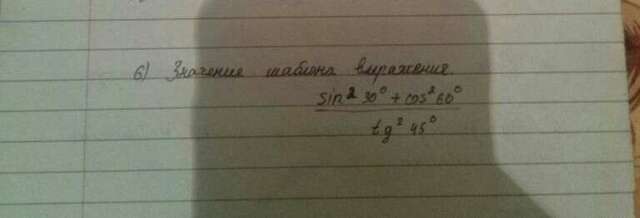 б) Значение шаблона выражения.
sin² 30° + cos² 60°
tg² 45°